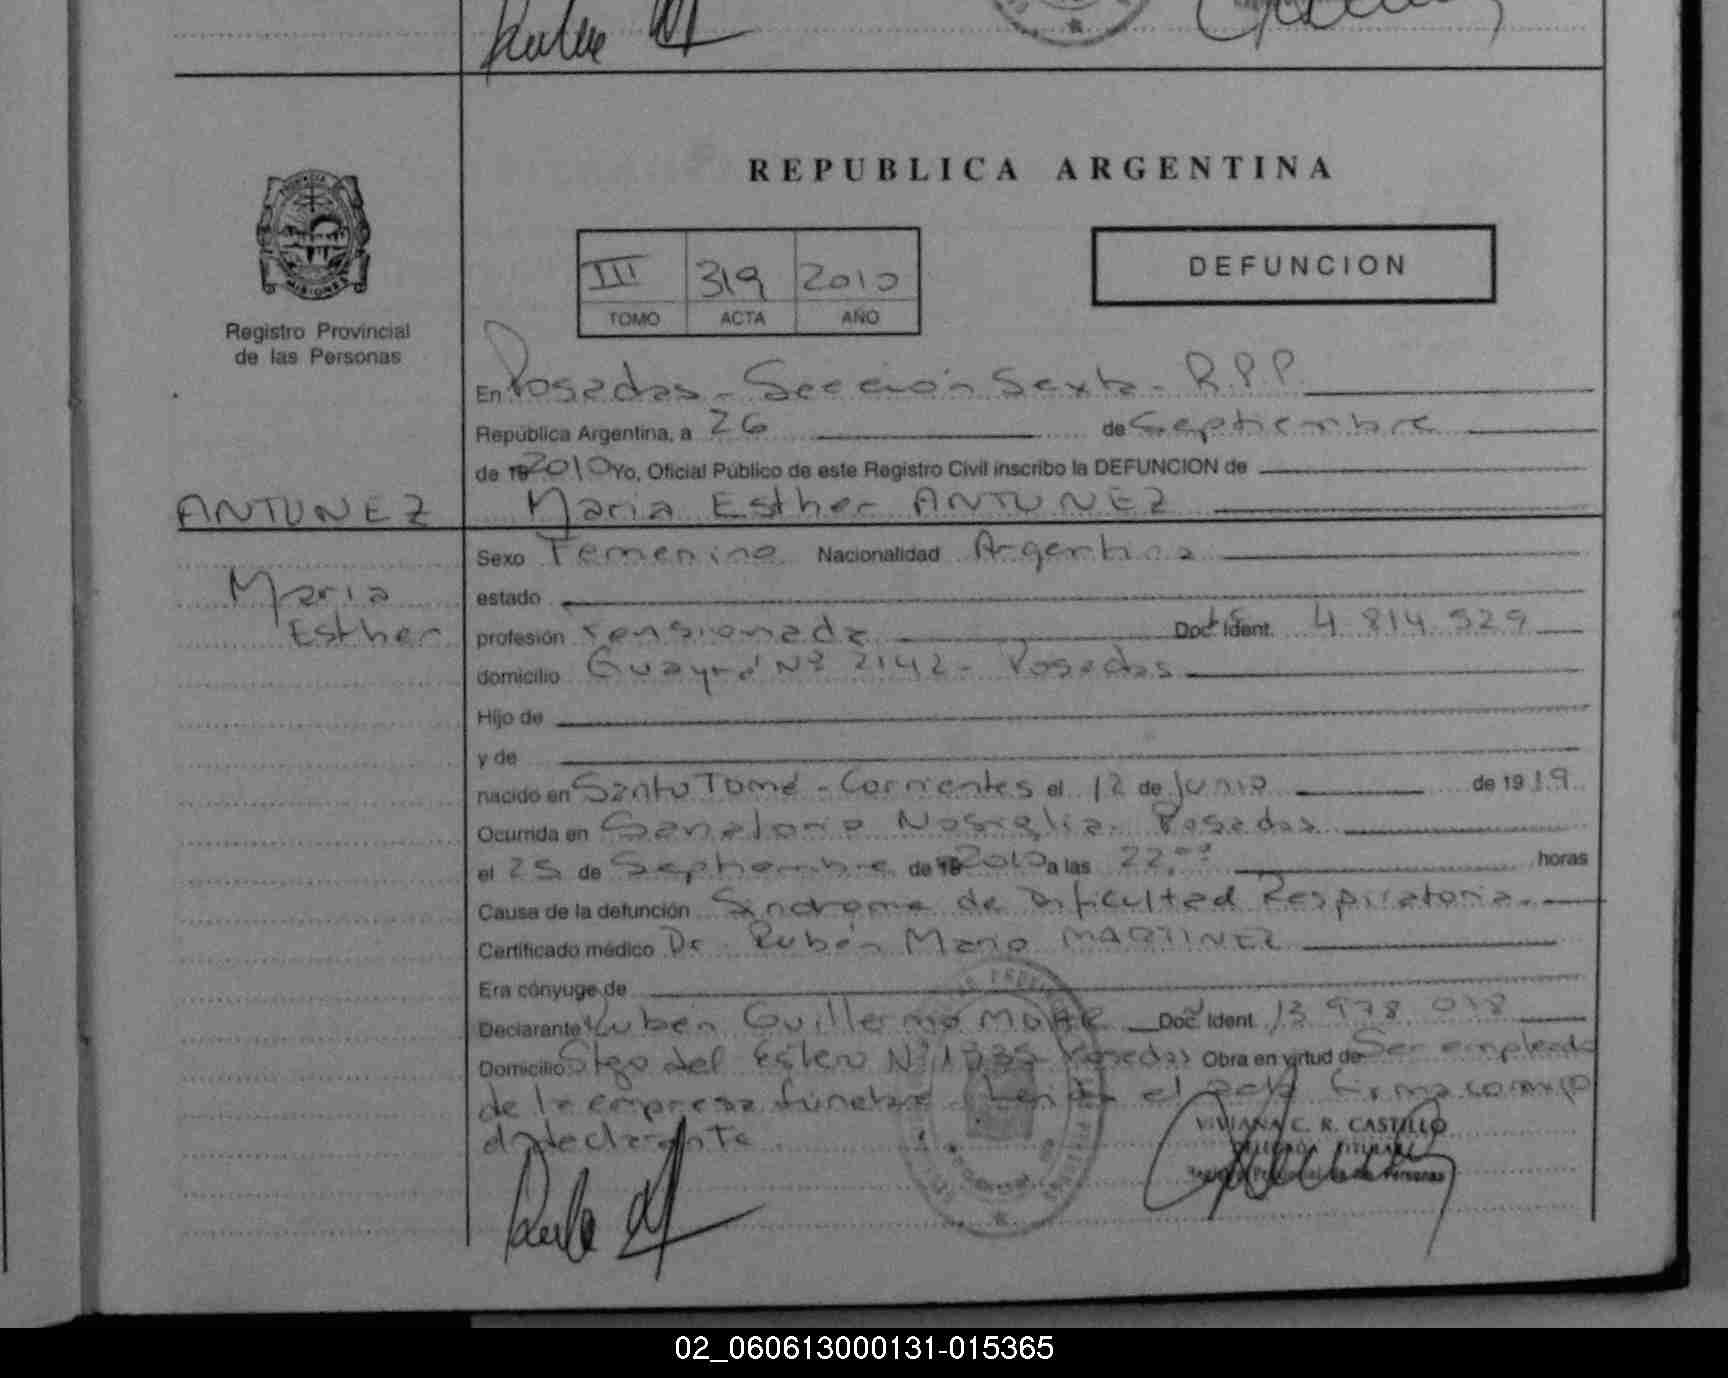 REPUBLICA ARGENTINA
PROVINCIA
MISIONES
Registro Provincial
de las Personas
III 319 2010
TOMO ACTA AÑO
DEFUNCION
En Posadas - Sección Sexta - R.P.P.
República Argentina, a 26 de Septiembre
de 19 2010 Yo, Oficial Público de este Registro Civil inscribo la DEFUNCION de
ANTUNEZ
Maria Esther ANTUNEZ
Maria
Esther
Sexo Femenino Nacionalidad Argentina
estado
profesión Pensionada Doc. Ident. 4.814.529
domicilio Guayrá Nº 2142 - Posadas
Hijo de
y de
nacido en Santo Tomé - Corrientes el 12 de Junio de 1919
Ocurrida en Sanatorio Nosiglia - Posadas
el 25 de Septiembre de 19 2010 a las 22,00 horas
Causa de la defunción Sindrome de Dificultad Respiratoria.
Certificado médico Dr. Rubén Mario MARTINEZ
Era cónyuge de
Declarante Rubén Guillermo Doc. Ident. 13.978.038
Domicilio Stgo del Estero Nº 1335 Posadas Obra en virtud de Ser empleado
de la empresa fúnebre. Leída el acta firma conmigo
el declarante
VIVIANA C. R. CASTILLO
DELEGADA TITULAR
Registro Provincial de las Personas
02_060613000131-015365